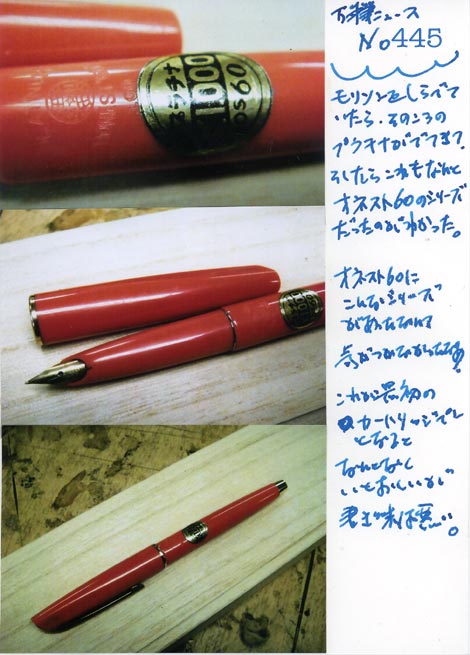 プラチナ
1000
万年筆ニュース
No445
モリソンをしらべて
いたら、そのころの
プラチナがでてきて
そしたらこれもなんと
オネスト60のシリーズ
だったのがわかった。
オネスト60に
こんなシリーズ
があったなんて
気がつかなかったなあ
これが最初の
カートリッジペン
となると
なんとなく
いとおしいが
は悪い。